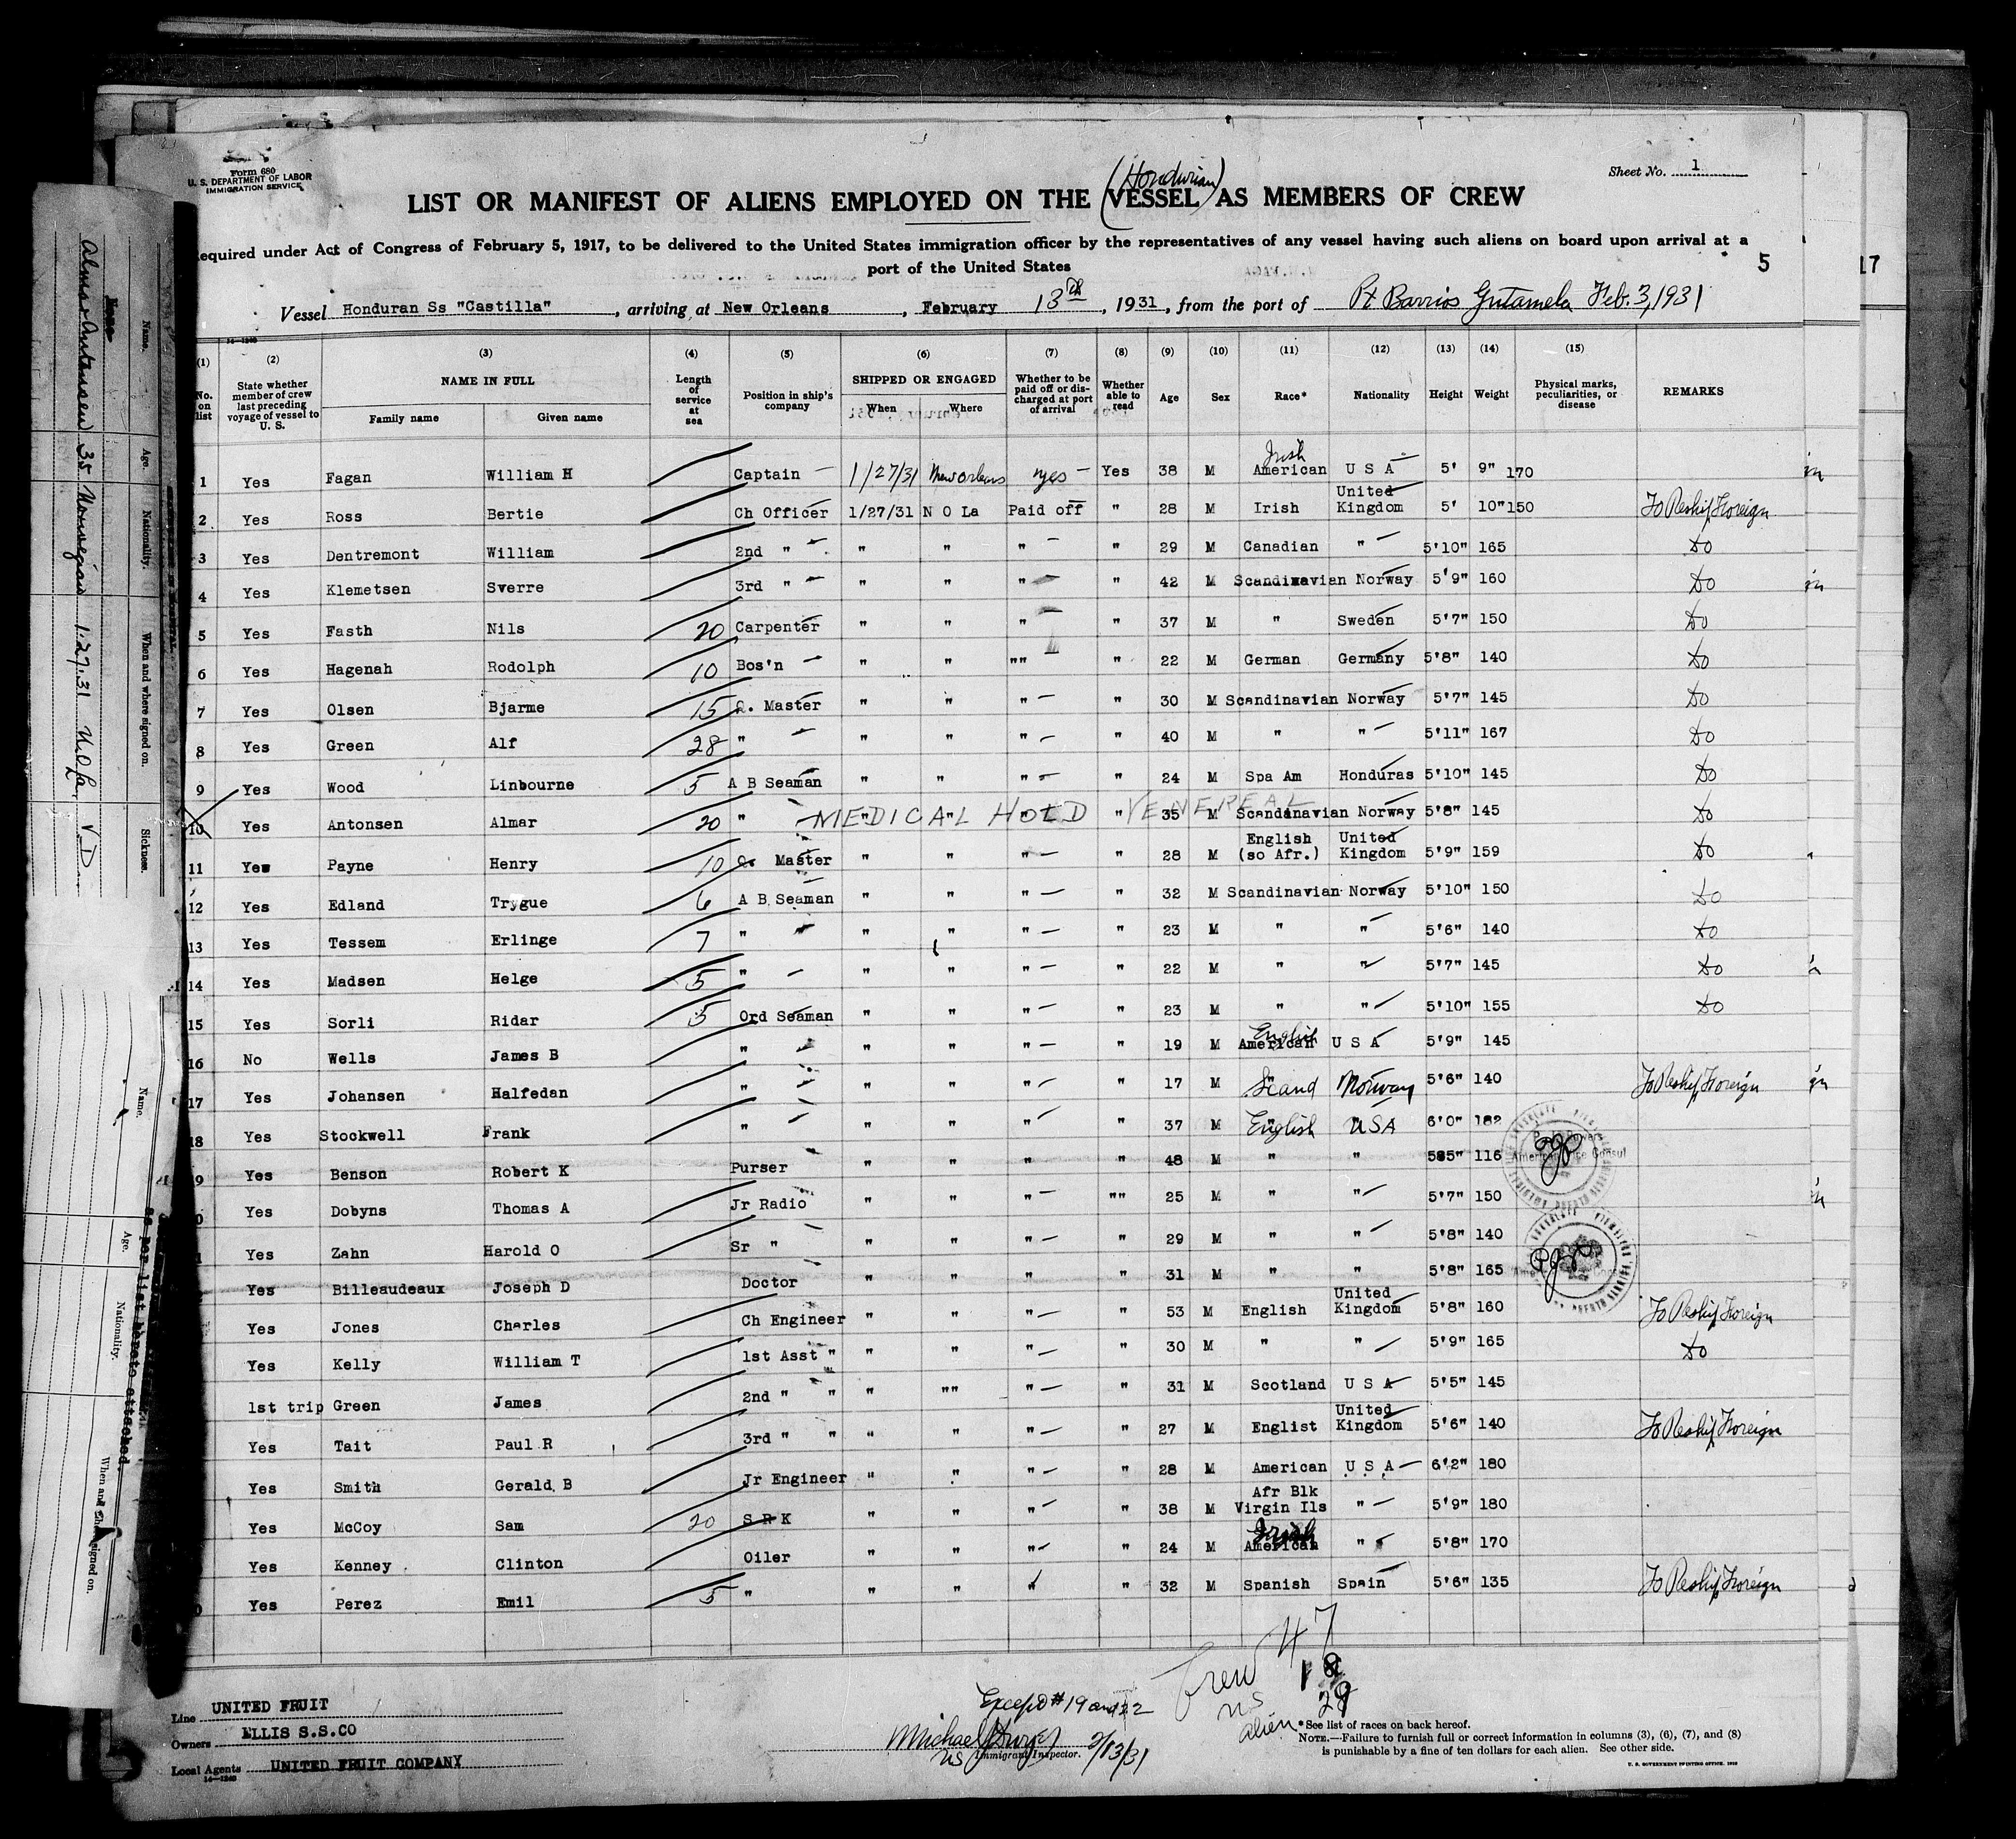 Form 680
U. S. DEPARTMENT OF LABOR
IMMIGRATION SERVICE
Sheet No. 1
(Hondurian)
LIST OR MANIFEST OF ALIENS EMPLOYED ON THE (VESSEL) AS MEMBERS OF CREW
equired under Act of Congress of February 5, 1917, to be delivered to the United States immigration officer by the representatives of any vessel having such aliens on board upon arrival at a
port of the United States
5
17
Vessel Honduran Ss "Castilla", arriving at New Orleans, February 13th, 1931, from the port of Pt Barrios Gutamela Feb. 3, 1931
14-1240
(1) (2) (3) (4) (5) (6) (7) (8) (9) (10) (11) (12) (13) (14) (15)
No. on list
State whether member of crew last preceding voyage of vessel to U. S.
NAME IN FULL
Family name Given name
Length of service at sea
Position in ship's company
SHIPPED OR ENGAGED
When Where
Whether to be paid off or discharged at port of arrival
Whether able to read
Age Sex Race* Nationality Height Weight
Physical marks, peculiarities, or disease
REMARKS
1 Yes Fagan William H Captain 1/27/31 New Orleans yes Yes 38 M Irish American U S A 5' 9" 170
2 Yes Ross Bertie Ch Officer 1/27/31 N O La Paid off " 28 M Irish United Kingdom 5' 10" 150 To Reship Foreign
3 Yes Dentremont William 2nd " " " " " 29 M Canadian " 5'10" 165 Do
4 Yes Klemetsen Sverre 3rd " " " " " 42 M Scandinavian Norway 5'9" 160 Do
5 Yes Fasth Nils 20 Carpenter " " " " 37 M " Sweden 5'7" 150 Do
6 Yes Hagenah Rodolph 10 Bos'n " " "" " 22 M German Germany 5'8" 140 Do
7 Yes Olsen Bjarme 15 Q. Master " " " " 30 M Scandinavian Norway 5'7" 145 Do
8 Yes Green Alf 28 " " " " " 40 M " " 5'11" 167 Do
9 Yes Wood Linbourne 5 A B Seaman " " " " 24 M Spa Am Honduras 5'10" 145 Do
MEDICAL HOLD VENEREAL
10 Yes Antonsen Almar 20 " " " " " 35 M Scandinavian Norway 5'8" 145 Do
11 Yes Payne Henry 10 Q. Master " " " " 28 M English (so Afr.) United Kingdom 5'9" 159 Do
12 Yes Edland Trygue 6 A B Seaman " " " " 32 M Scandinavian Norway 5'10" 150 Do
13 Yes Tessem Erlinge 7 " " " " " 23 M " " 5'6" 140 Do
14 Yes Madsen Helge 5 " " " " " 22 M " " 5'7" 145 Do
15 Yes Sorli Ridar 5 Ord Seaman " " " " 23 M " " 5'10" 155 Do
16 No Wells James B " " " " " 19 M English American U S A 5'9" 145
17 Yes Johansen Halfedan " " " " " 17 M Scand Norway 5'6" 140 To Reship Foreign
18 Yes Stockwell Frank " " " " " 37 M English USA 6'0" 182
9 Yes Benson Robert K Purser " " " " 48 M " " 5'5" 116
0 Yes Dobyns Thomas A Jr Radio " " " "" 25 M " " 5'7" 150
1 Yes Zahn Harold O Sr " " " " " 29 M " " 5'8" 140
Yes Billeaudeaux Joseph D Doctor " " " " 31 M " " 5'8" 165
Yes Jones Charles Ch Engineer " " " " 53 M English United Kingdom 5'8" 160 To Reship Foreign
Yes Kelly William T 1st Asst " " " " " 30 M " " 5'9" 165 Do
1st trip Green James 2nd " " " "" " " 31 M Scotland U S A 5'5" 145
Yes Tait Paul R 3rd " " " " " " 27 M Englist United Kingdom 5'6" 140 To Reship Foreign
Yes Smith Gerald B Jr Engineer " " " " 28 M American U S A 6'2" 180
Yes McCoy Sam 20 S R K " " " " 38 M Afr Blk Virgin Ils " 5'9" 180
Yes Kenney Clinton Oiler " " " " 24 M Irish American " 5'8" 170
0 Yes Perez Emil 5 " " " " " 32 M Spanish Spain 5'6" 135 To Reship Foreign
Crew 47
US 18
alien 29
Line UNITED FRUIT
Owners ELLIS S.S.CO
Local Agents UNITED FRUIT COMPANY
14-1240
Except # 19 and 22
Michael
US Immigrant Inspector. 2/13/31
*See list of races on back hereof.
NOTE.—Failure to furnish full or correct information in columns (3), (6), (7), and (8)
is punishable by a fine of ten dollars for each alien. See other side.
U. S. GOVERNMENT PRINTING OFFICE
Name. Age. Nationality. When and where signed on. Sickness.
Almar Antonsen 35 Norwegian 1.27.31 N.O.La. V.D.
Name. Age. Nationality. When and where signed on.
as per list hereto attached.